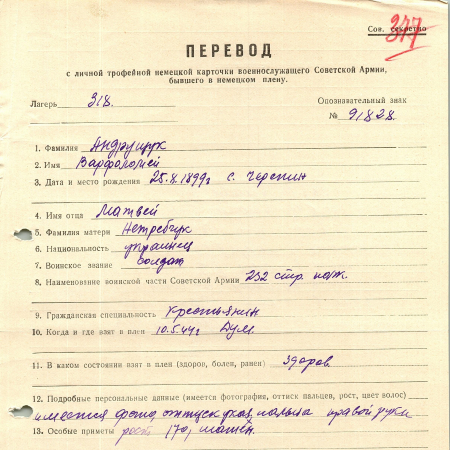 Сов. секретно
377
ПЕРЕВОД
с личной трофейной немецкой карточки военнослужащего Советской Армии,
бывшего в немецком плену.
Лагерь 318. Опознавательный знак
№ 91828.
1. Фамилия Андрущук
2. Имя Варфоломей
3. Дата и место рождения 25.X.1899г с. Черепин
4. Имя отца Матвей
5. Фамилия матери Нетребчук
6. Национальность украинец
7. Воинское звание солдат
8. Наименование воинской части Советской Армии 232 стр. полк.
9. Гражданская специальность Крестьянин
10. Когда и где взят в плен 10.5.44г
11. В каком состоянии взят в плен (здоров, болен, ранен) здоров.
12. Подробные персональные данные (имеется фотография, оттиск пальцев, рост, цвет волос)
имеется фото, оттиск указ. пальца правой руки
13. Особые приметы рост 170,